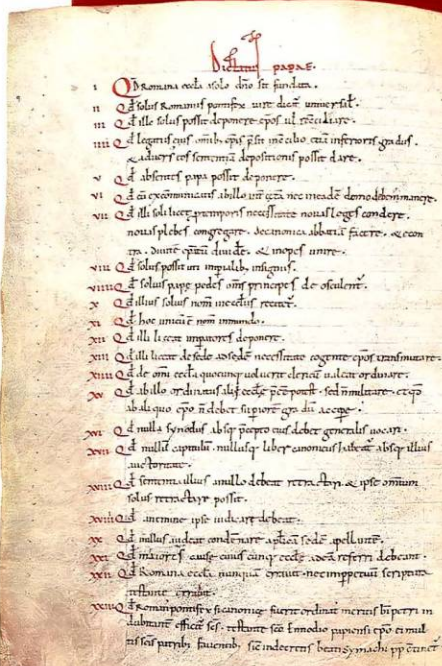 Dictatus papae.
i Qd Romana eccla a solo dno sit fundata.
ii Qd solus Romanus pontifex iure dicat universal.
iii Qd ille solus possit deponere epos ul reconciliare.
iiii Qd legatus eius omib; epis psit in concilio etiã inferioris gradus.
& adversus eos sententiã depositionis possit dare.
v Qd absentes papa possit deponere.
vi Qd cũ excommunicatis ab illo int cetera nec in eadẽ domo debem' manere.
vii Qd illi soli licet p temporis necessitate novas leges condere.
novas plebes congregare. de canonica abbatiã facere. & econ
tra. divitẽ epatũ divide. & inopes unire.
viii Qd solus possit uti impialib; insigniis.
viiii Qd solius pape pedes oms principes deosculent.
x Qd illius solius nom in ecclis recitet.
xi Qd hoc unicũ ẽ nom in mundo.
xii Qd illi liceat impatores deponere.
xiii Qd illi liceat de sede ad sedẽ necessitate cogente epos transmutare.
xiiii Qd de omi eccla quocunq; voluerit clericũ valeat ordinare.
xv Qd ab illo ordinatus alii eccle pẽe potest. sed ñ militare. et qd
ab aliquo epo ñ debet supiorẽ gradũ accipe.
xvi Qd nulla synodus absq; pcepto eius debet generalis vocari.
xvii Qd nullũ capitulũ nullusq; liber canonicus habeat absq; illius
auctoritate.
xviii Qd sententia illius a nullo debeat retractari. & ipse omium
solus retractare possit.
xviiii Qd a nemine ipse iudicari debeat.
xx Qd nullus audeat condemnare aplicã sedẽ apellante.
xxi Qd maiores cause cuiuscunq; eccle ad eã referri debeant.
xxii Qd Romana eccla nunquã erravit. nec imppetuũ scriptura
testante errabit.
xxiii Qd Roman' pontifex si canonice fuerit ordinat' meritis bi petri in
dubitant efficit scs. testante sco Ennodio papiensi epo ei mul
tis scis patrib; faventib; sic in decretis beati symachi pp cõtinet